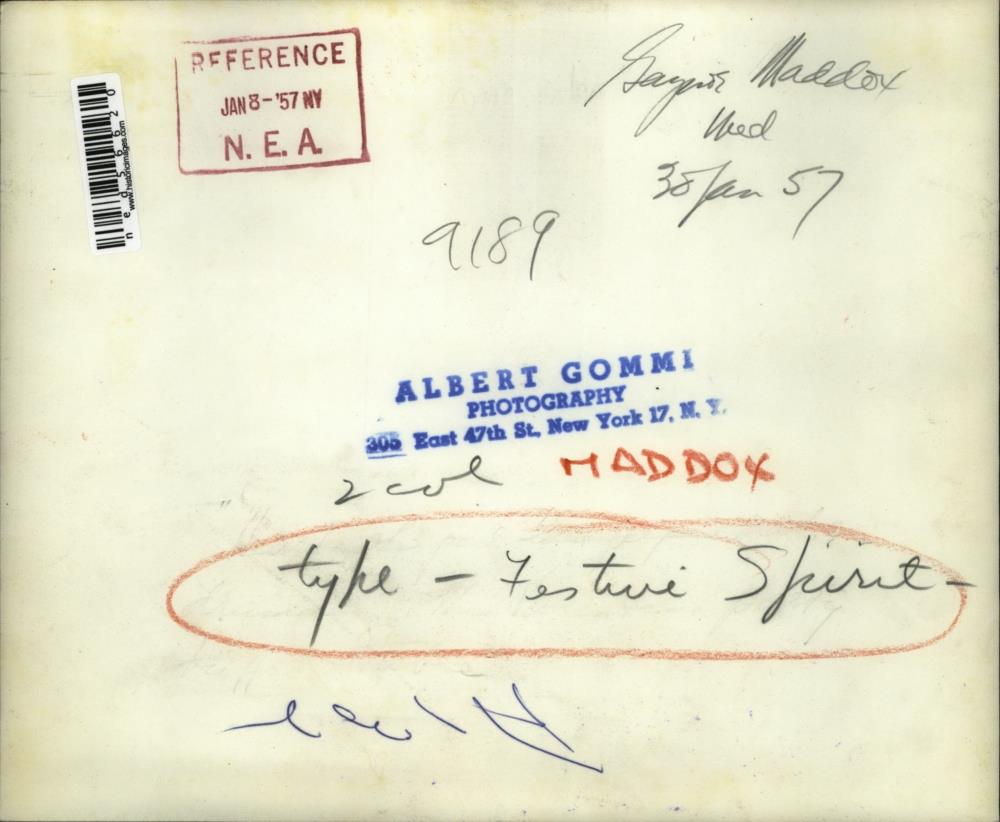 REFERENCE
JAN 8-'57 NY
N. E. A.
Gaynor Maddox
Wed
Jan 57
9189
ned56620
www.historicimages.com
ALBERT GOMMI
PHOTOGRAPHY
305 East 47th St., New York 17, N. Y.
2 col
MADDOX
type - Festive Spirit -